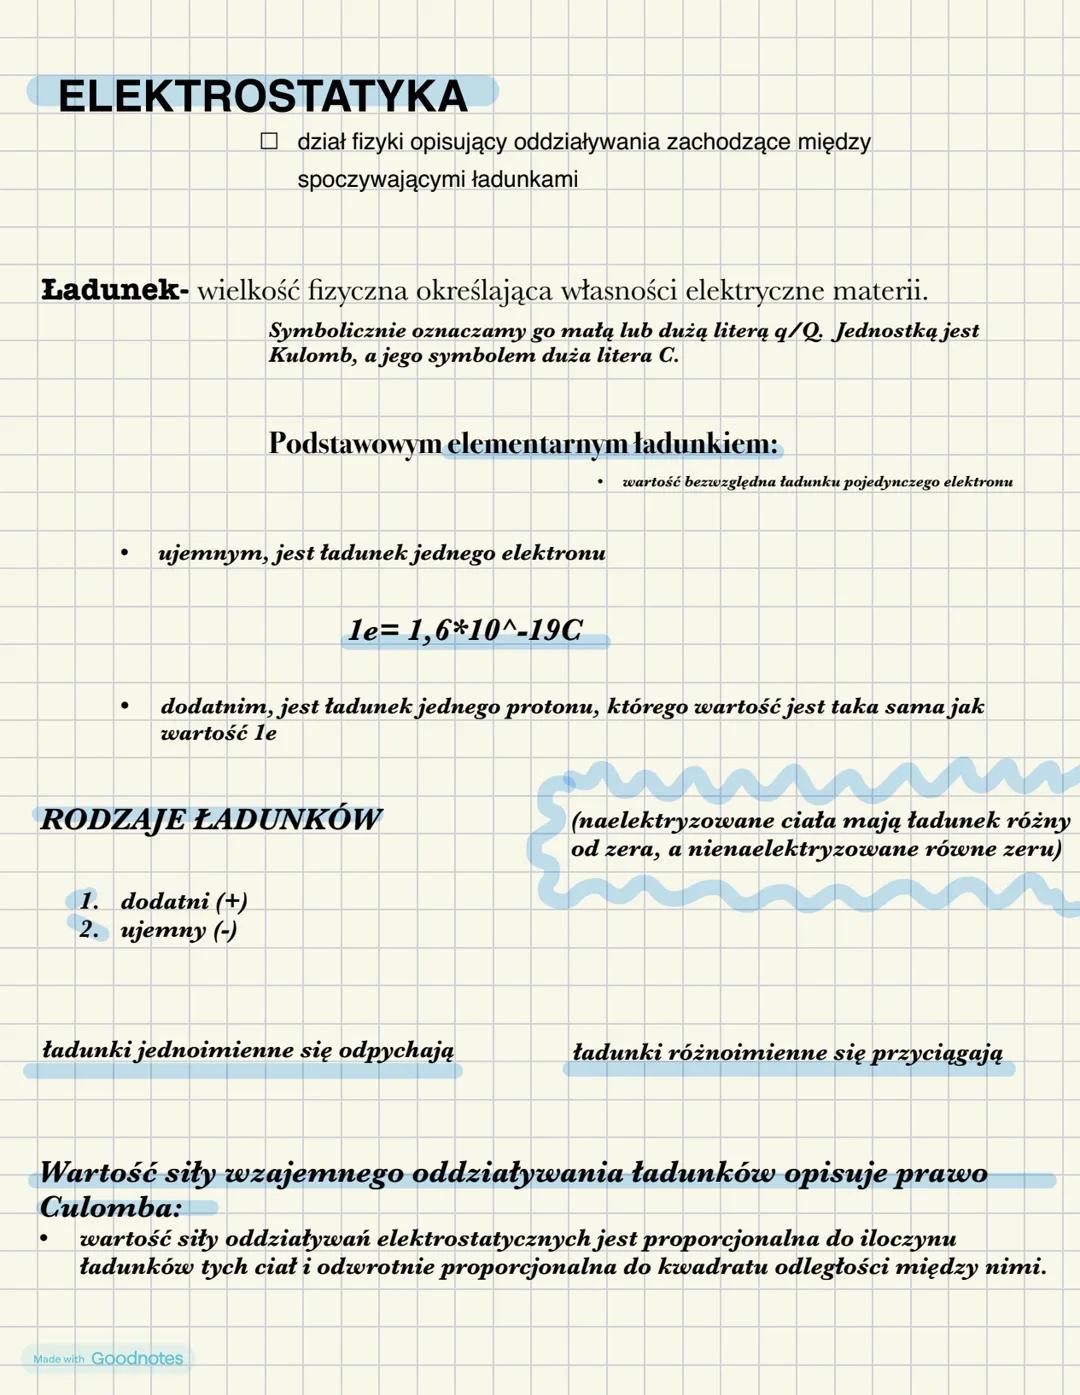 ELEKTROSTATYKA
☐ dział fizyki opisujący oddziaływania zachodzące między
spoczywającymi ładunkami
Ładunek- wielkość fizyczna określająca własności elektryczne materii.
Symbolicznie oznaczamy go małą lub dużą literą q/Q. Jednostką jest
Kulomb, a jego symbolem duża litera C.
Podstawowym elementarnym ładunkiem:
• wartość bezwzględna ładunku pojedynczego elektronu
• ujemnym, jest ładunek jednego elektronu
1e= 1,6*10^-19C
• dodatnim, jest ładunek jednego protonu, którego wartość jest taka sama jak
wartość 1e
RODZAJE ŁADUNKÓW
(naelektryzowane ciała mają ładunek różny
od zera, a nienaelektryzowane równe zeru)
1. dodatni (+)
2. ujemny (-)
ładunki jednoimienne się odpychają
ładunki różnoimienne się przyciągają
Wartość siły wzajemnego oddziaływania ładunków opisuje prawo
Culomba:
• wartość siły oddziaływań elektrostatycznych jest proporcjonalna do iloczynu
ładunków tych ciał i odwrotnie proporcjonalna do kwadratu odległości między nimi.
Made with Goodnotes